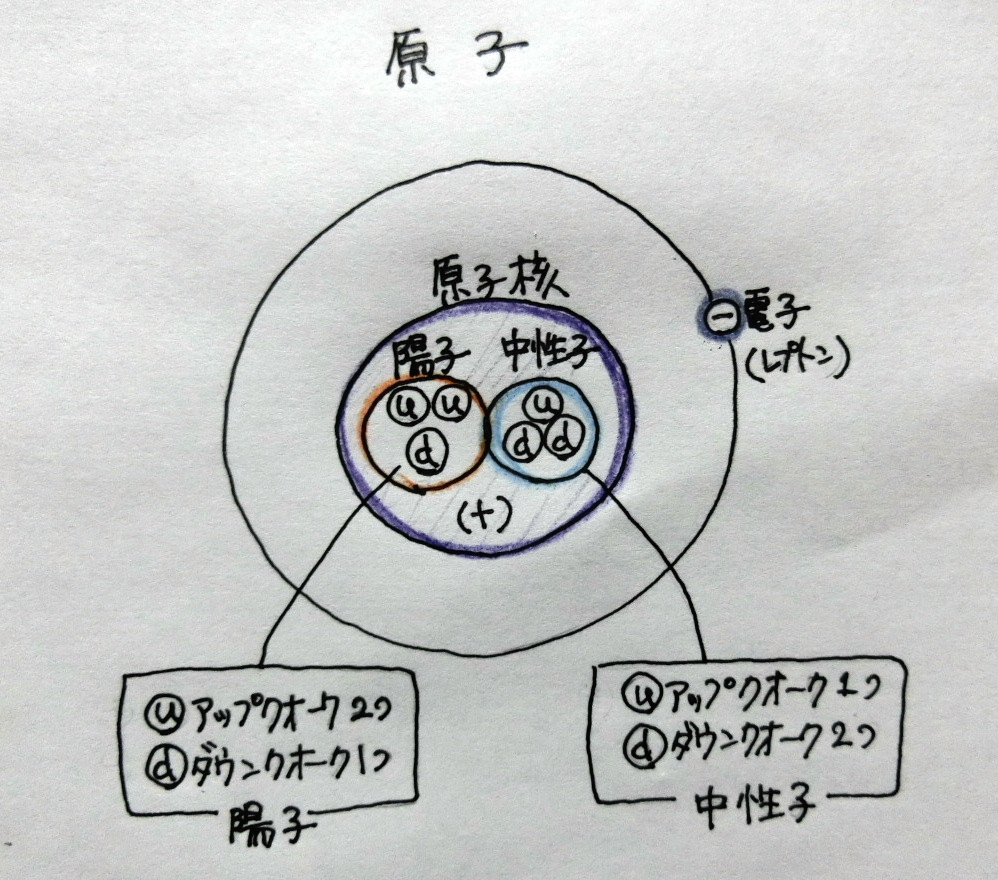 原子
原子核
⊖ 電子
(レプトン)
陽子 中性子
u u
d
u
d d
(+)
u アップクオーク2つ
d ダウンクオーク1つ
陽子
u アップクオーク1つ
d ダウンクオーク2つ
中性子